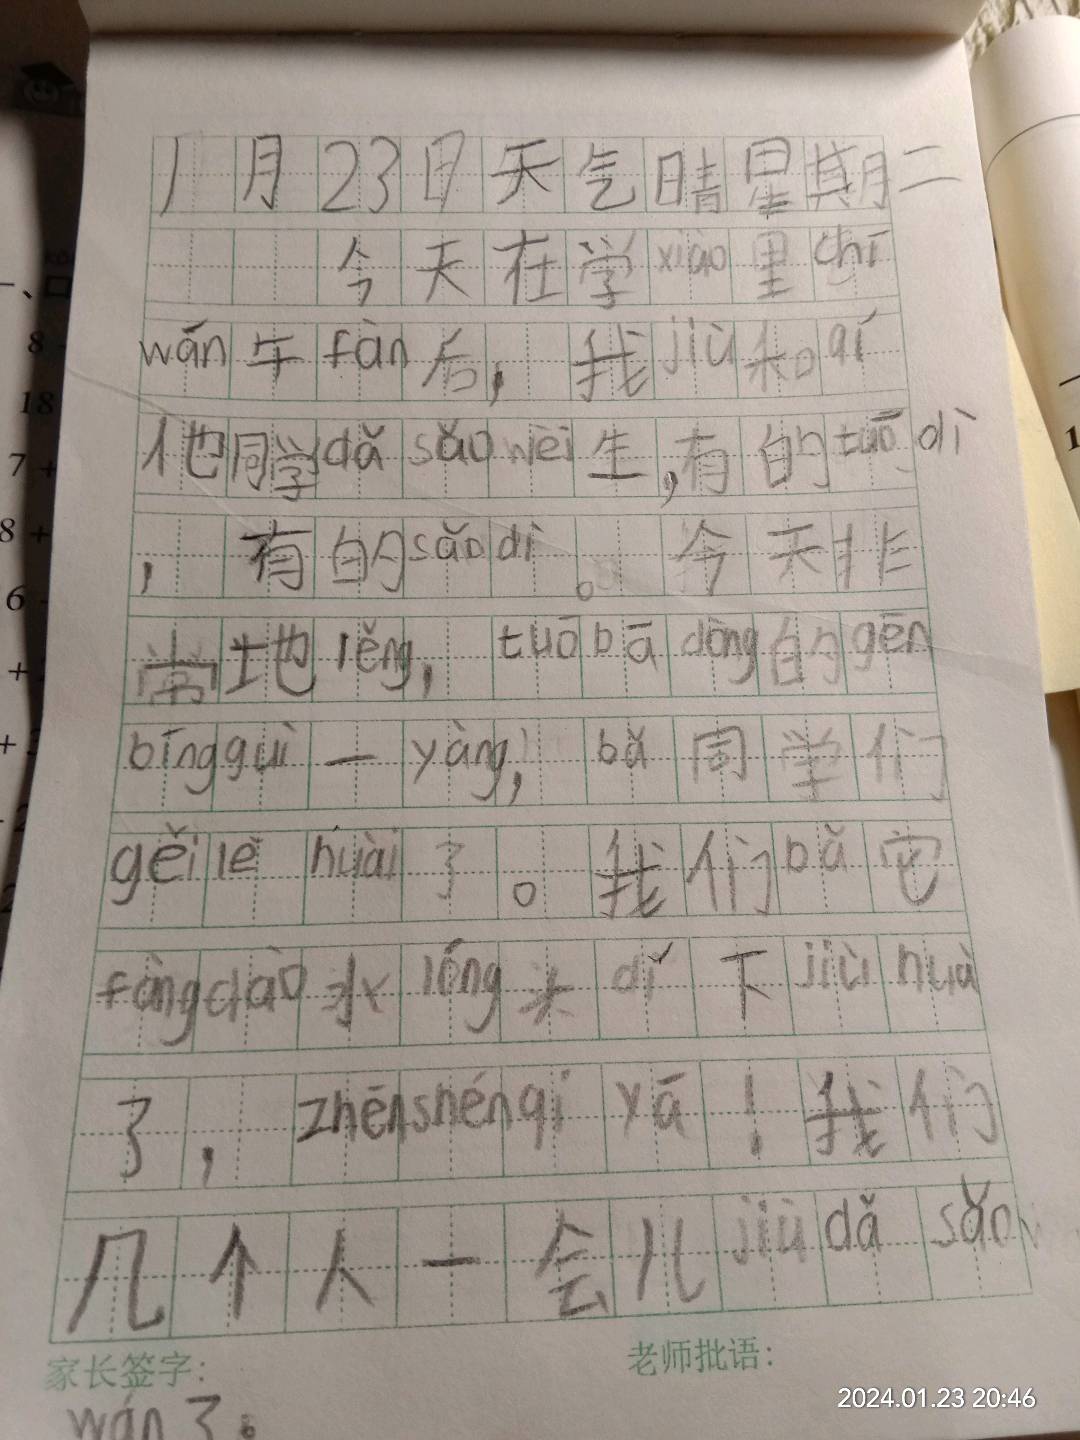 1月23日天气晴星期二
今天在学xiào里chī
wán午fàn后，我jiù和qí
他同学dǎ sǎo wèi生，有的tuō dì
，有的sǎo dì。今天排
常地lěng，tuō bā dòng的gēn
bīng guì一yàng，bǎ同学们
gěi lè huài了。我们bǎ它
fàng dào水lóng头dǐ下jiù huà
了，zhēn shén qí yā！我们
几个人一会儿jiù dǎ sǎo
家长签字：
老师批语：
wán了。
2024.01.23 20:46
8
18
7 +
8 +
6
+
+
1